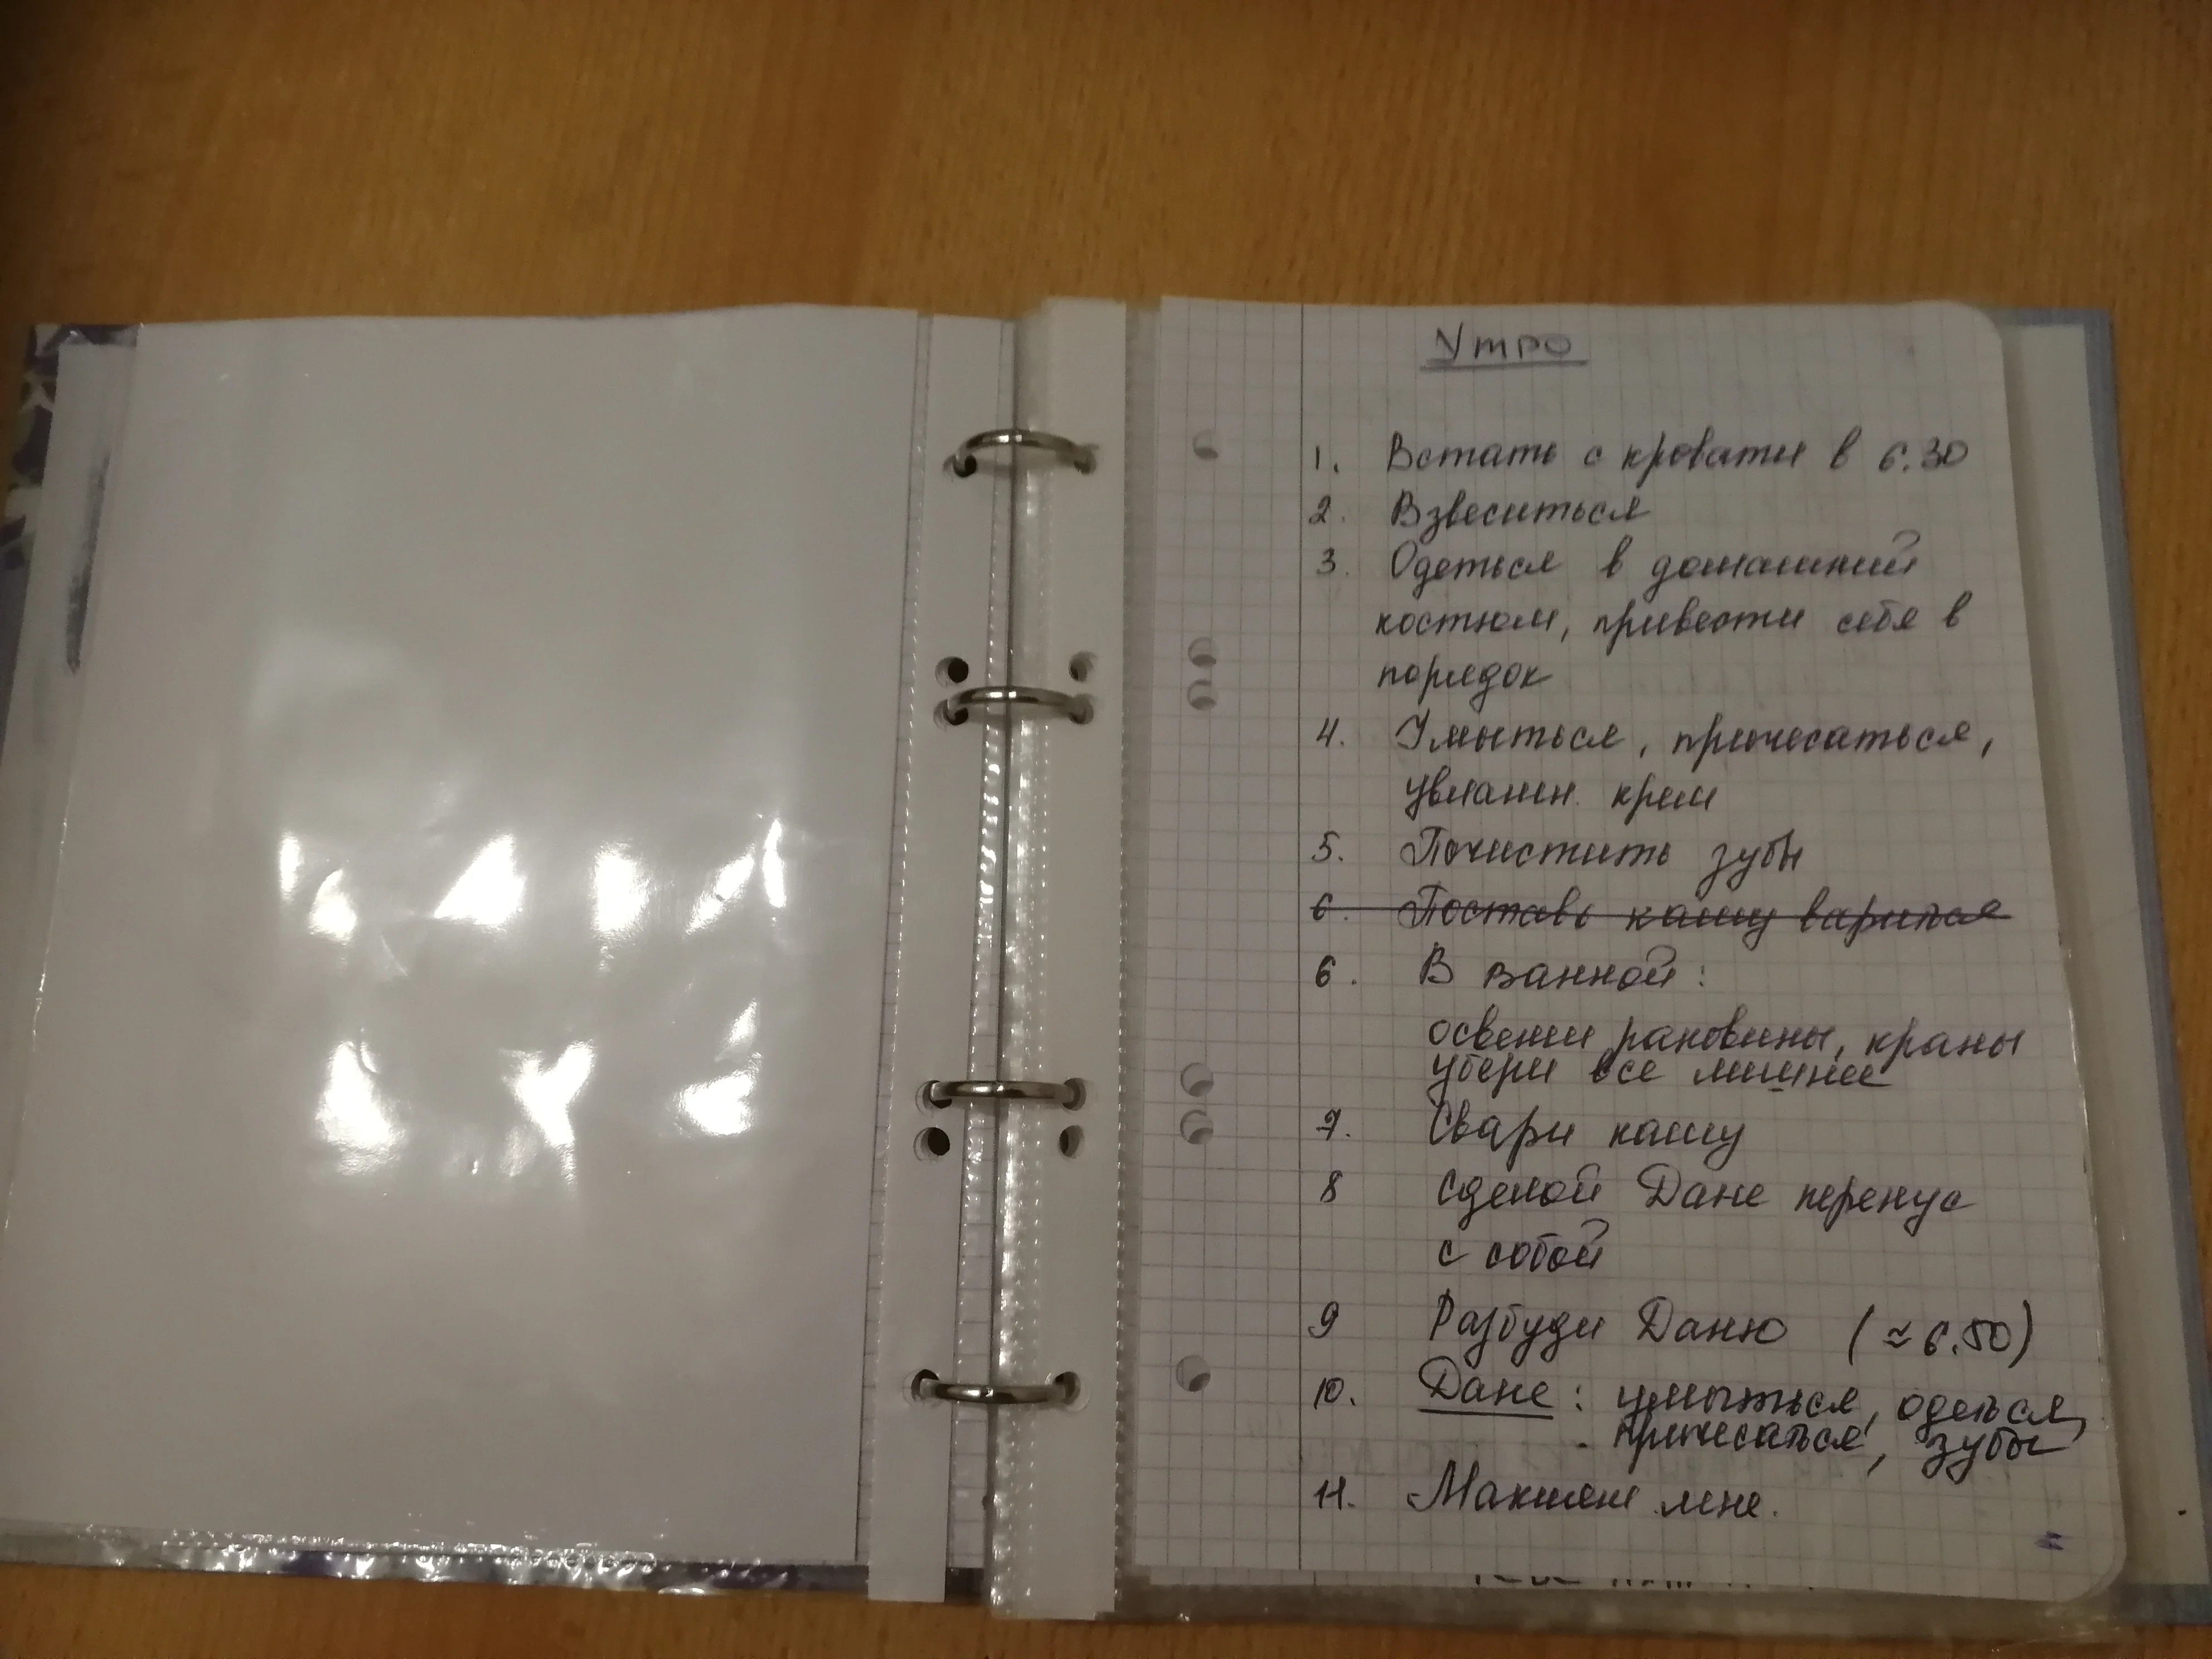 Утро
1. Встать с кровати в 6.30
2. Взвеситься
3. Одеться в домашний
костюм, привести себя в
порядок
4. Умыться, причесаться,
увлажн. крем
5. Почистить зубы
6. Поставь кашу вариться
6. В ванной:
освежи раковины, краны
убери все лишнее
7. Свари кашу
8 Сделой Дане перекус
с собой
9 Разбуди Даню (≈6.50)
10. Дане: умыться, одеться,
причесаться, зубы
11. Макияж мне.